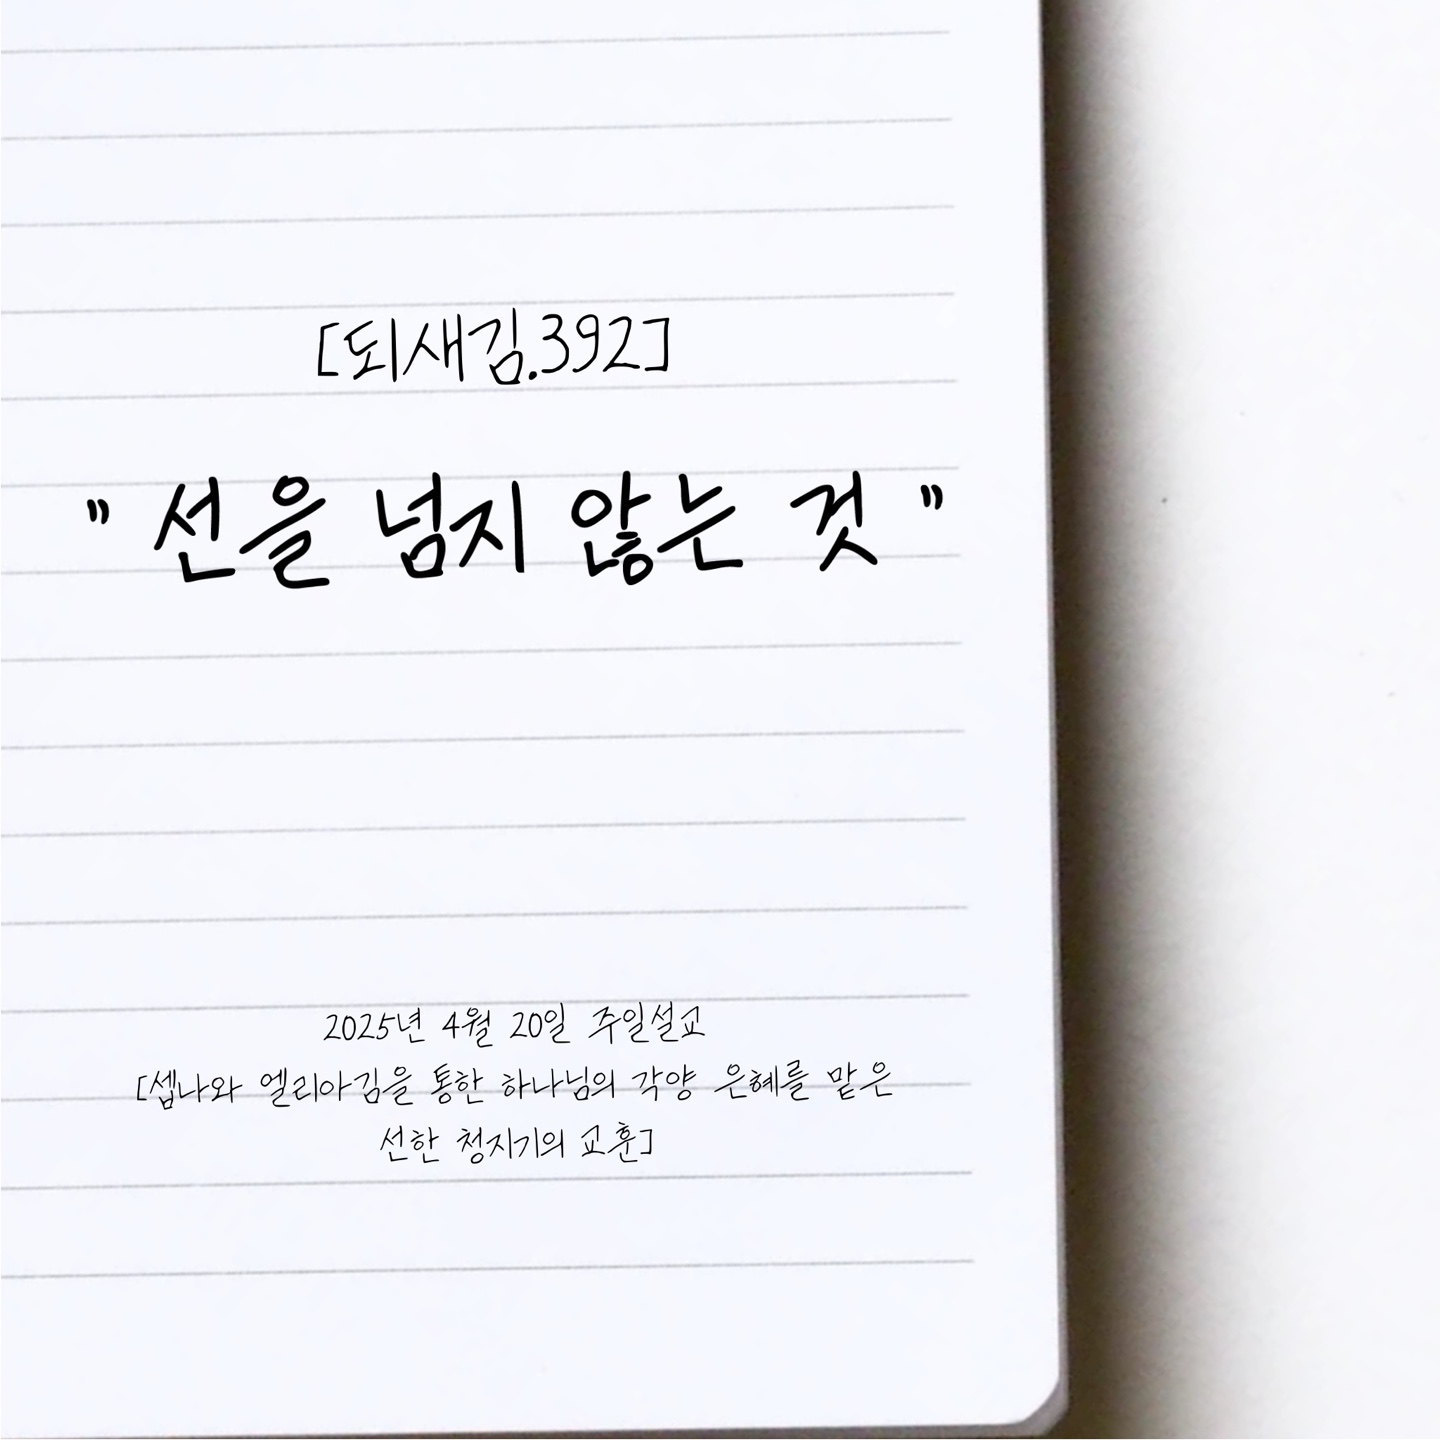 [되새김.392]
" 선을 넘지 않는 것 "
2025년 4월 20일 주일설교
[셉나와 엘리아김을 통한 하나님의 각양 은혜를 맡은
선한 청지기의 교훈]